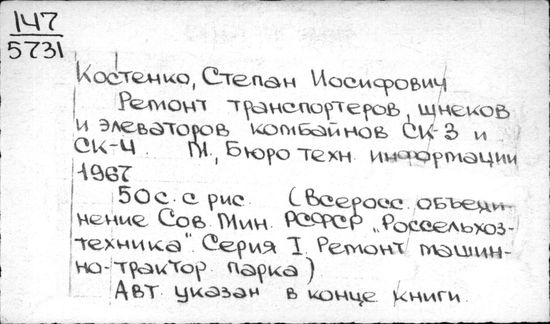 147
5731
Костенко, Степан Иосифович
Ремонт транспортеров, шнеков
и элеваторов комбайнов СК-3 и
СК-4 М., Бюро техн. информации
1967
50 с. с рис. (Всеросс. объеди-
нение Сов. Мин. РСФСР „Россельхоз-
техника". Серия I. Ремонт машин-
но-трактор. парка)
Авт. указан в конце книги.